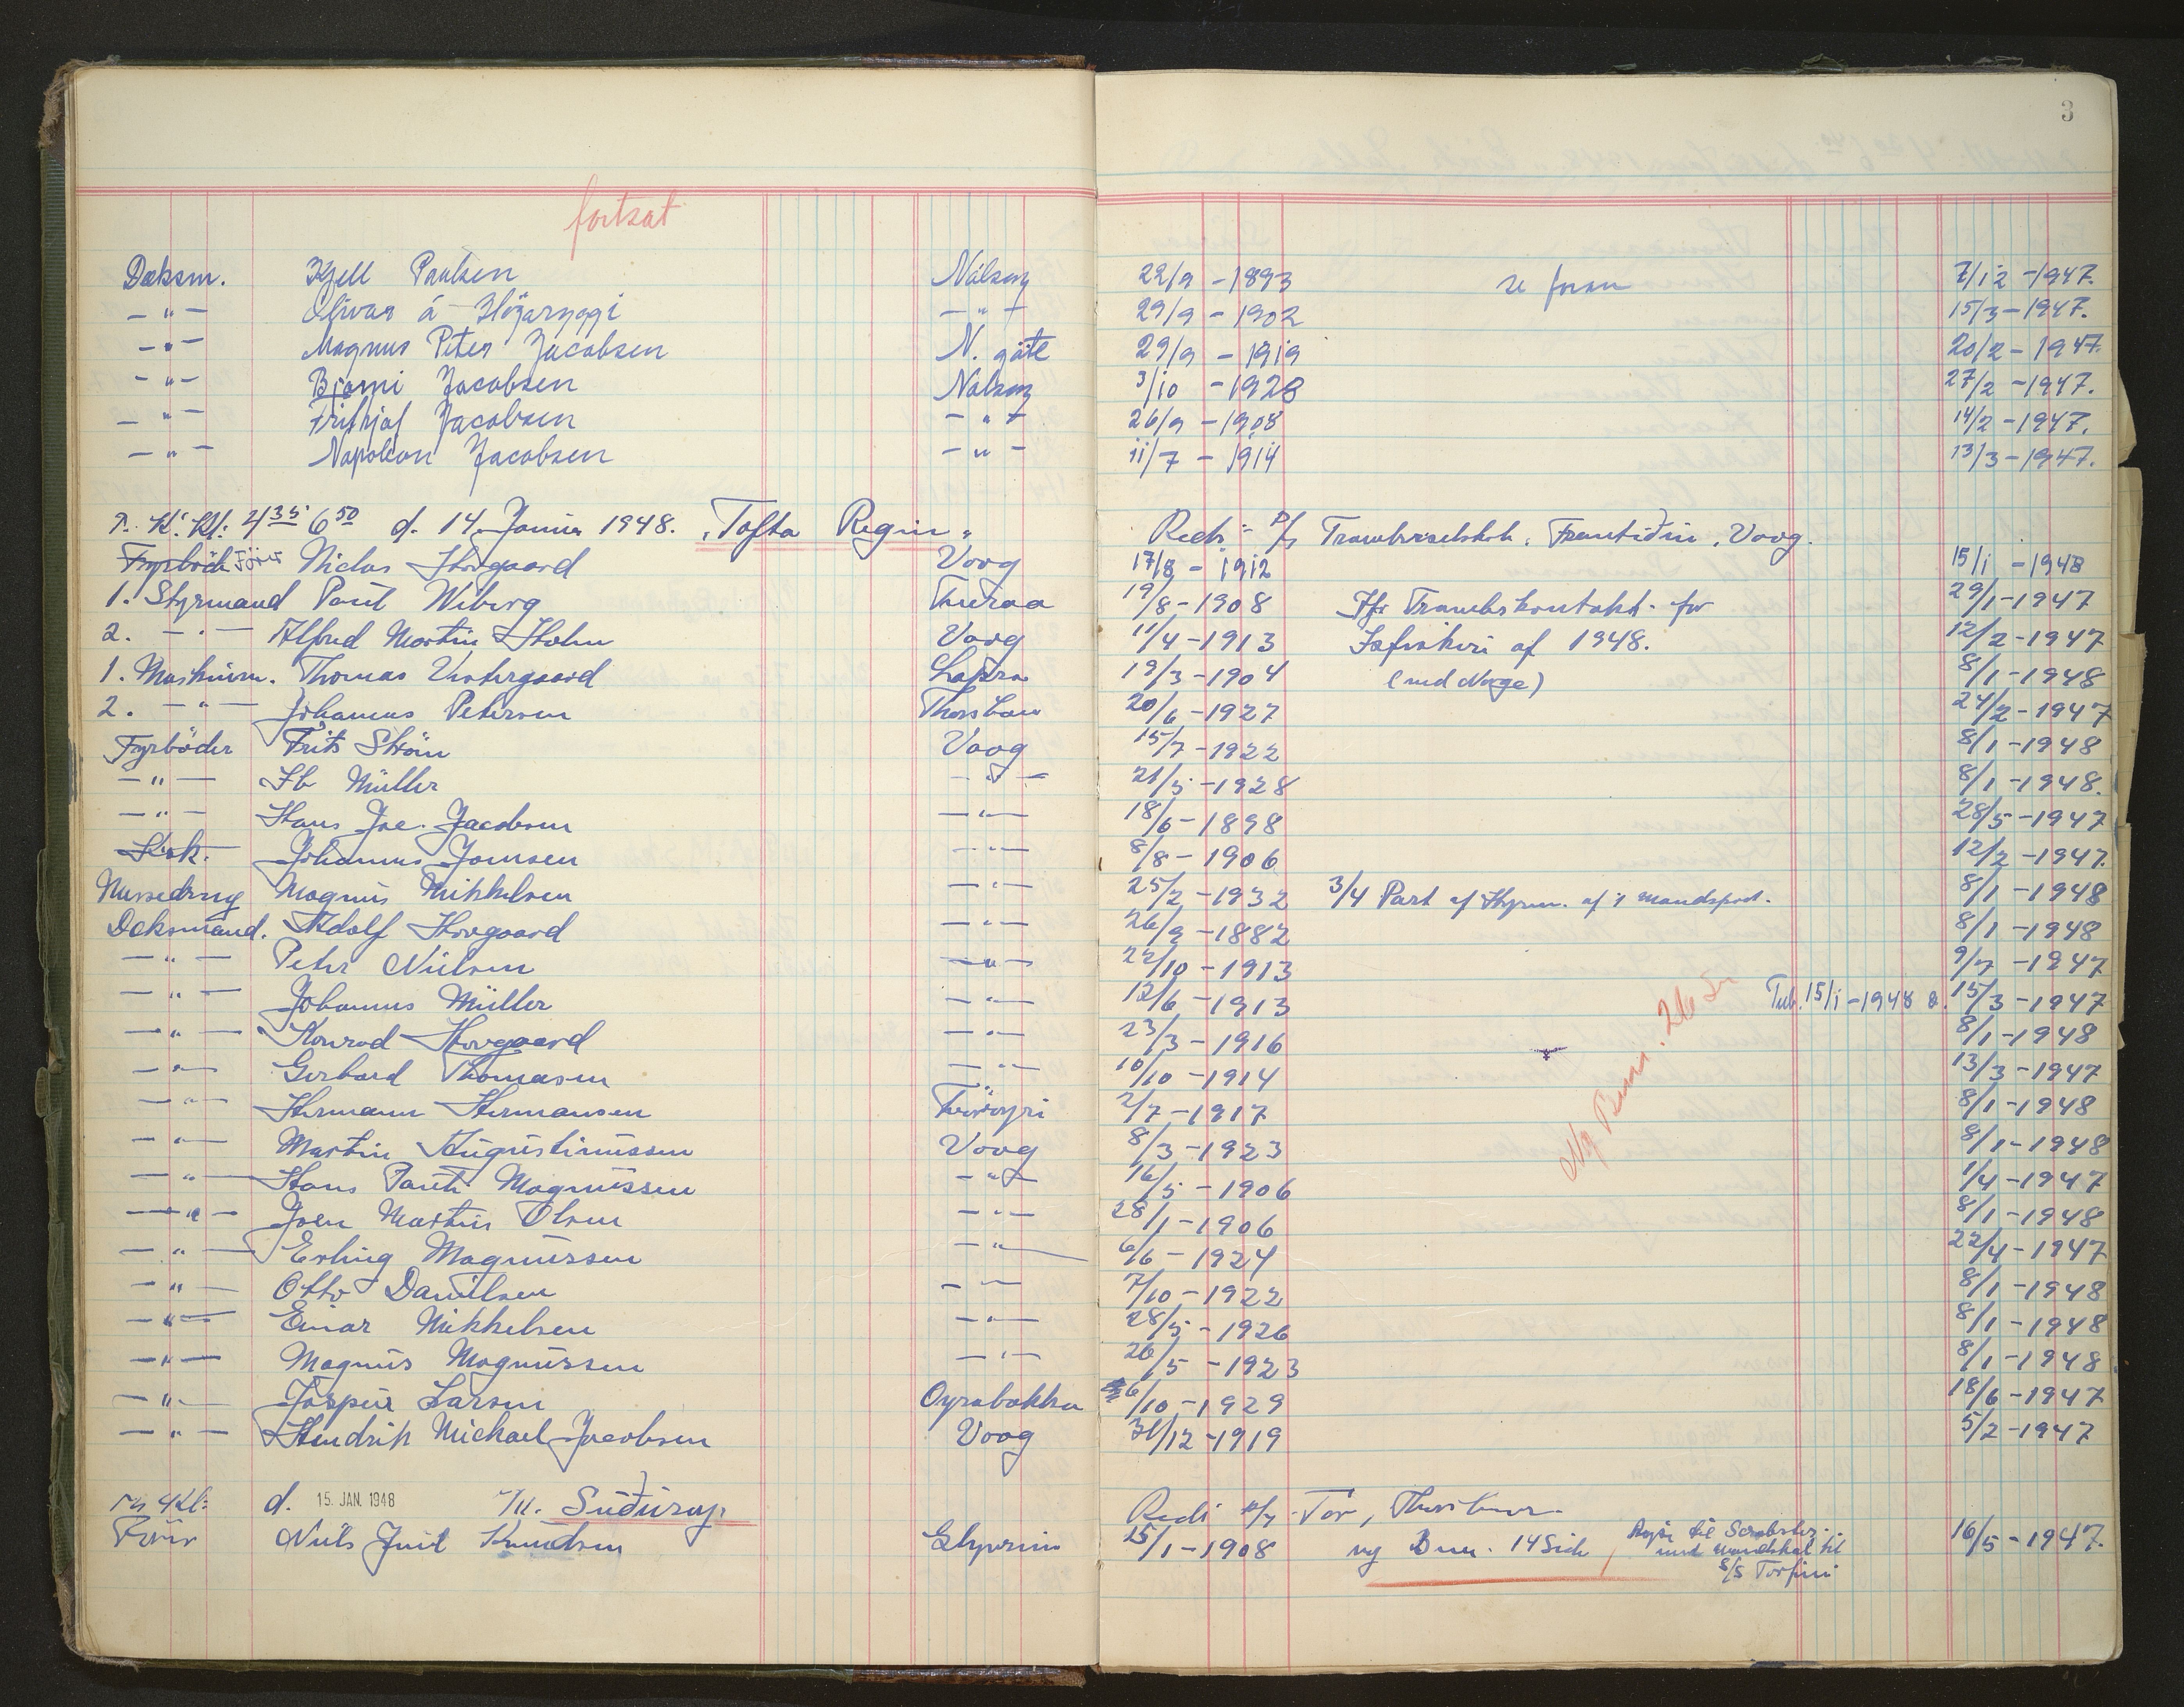 3
fortsat
Dæksm. Kjell Poulsen Nolsoy 22/9 - 1893 se foran 7/12 - 1947.
— " — Olivar á Höjarryggi — " — 29/9 - 1902 15/3 - 1947.
— " — Magnus Peter Jacobsen N. göte 29/9 - 1919 20/2 - 1947.
— " — Bjarni Jacobsen Nolsoy 3/10 - 1928 27/2 - 1947.
— " — Frithjof Jacobsen — " — 26/9 - 1908 14/2 - 1947.
— " — Napoleon Jacobsen — " — 11/7 - 1914 13/3 - 1947.
d. 14. Januar 1948. "Tofta Regin" Rederi P/f Trawlerselskab. Framtidin. Vaag.
Fyrböd Förer Niclas Hovgaard Vaag 17/8 - 1912 15/1 - 1948
1. Styrmand Poul Wiberg Tveraa 19/8 - 1908 Trawlskontrakt for 29/1 - 1947
2. — " — Alfred Martin Holm Vaag 11/4 - 1913 Isfiskeri af 1948. 12/2 - 1947
1. Maskinm. Thomas Vestergaard Lopra 19/3 - 1904 (med Norge) 8/1 - 1948
2. — " — Johannes Petersen Thorshavn 20/6 - 1927 24/2 - 1947
Fyrböder Frits Ström Vaag 15/7 - 1922 8/1 - 1948
— " — Ib Müller — " — 21/5 - 1928 8/1 - 1948.
— " — Hans Jac. Jacobsen — " — 18/6 - 1898 28/5 - 1947
Kok. Johannes Joensen — " — 8/8 - 1906 12/2 - 1947.
Messedreng Magnus Mikkelsen — " — 25/2 - 1932 3/4 Part af Hyren. af 1 mandspart. 8/1 - 1948
Deksmand. Adolf Hovgaard — " — 26/9 - 1882 8/1 - 1948
— " — Peter Nielsen — " — 22/10 - 1913 9/7 - 1947
— " — Johannes Müller — " — 12/6 - 1913 15/1 - 1948 & 15/3 - 1947
— " — Konrad Hovgaard — " — 23/3 - 1916 8/1 - 1948
— " — Gerhard Thomasen — " — 10/10 - 1914 13/3 - 1947
— " — Hermann Hermansen Tvöroyri 2/7 - 1917 8/1 - 1948
— " — Martin Augustinussen Vaag 8/3 - 1923 8/1 - 1948
— " — Hans Pauli Magnussen — " — 16/5 - 1906 1/4 - 1947
— " — Joen Martin Olsen — " — 28/1 - 1906 8/1 - 1948
— " — Erling Magnussen — " — 6/6 - 1924 22/4 - 1947
— " — Otto Danielsen — " — 7/10 - 1922 8/1 - 1948
— " — Einar Mikkelsen — " — 28/5 - 1926 8/1 - 1948
— " — Magnus Magnussen — " — 26/5 - 1923 8/1 - 1948
— " — Jaspur Larsen Oyrabakka 6/10 - 1929 18/6 - 1947
— " — Hendrik Michael Jacobsen Vaag 31/12 - 1919 5/2 - 1947
Ny Bem. 26 Sr
d. 15. JAN. 1948 Suđuroy. Rederi P/f Tor, Thorshavn
Förer Niels Juul Knudsen Glyvrum 15/1 - 1908 ny Bem. 14 Side Rejse til Scrabster 16/5 - 1947.
med mandskab til
S/S Torfinn